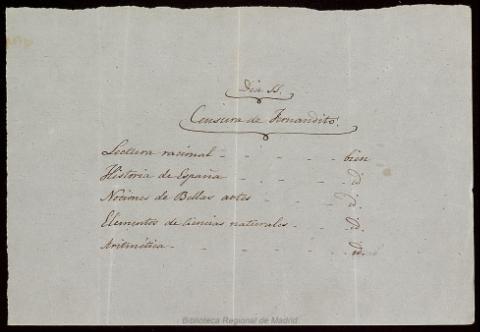 Dia 11.
Censura de Fernandito.
Lectura racional - - - - - bien
Historia de España - - - - d.
Nociones de Bellas artes - - - d.
Elementos de Ciencias naturales - - d.
Aritmética - - - - - - d.
Biblioteca Regional de Madrid